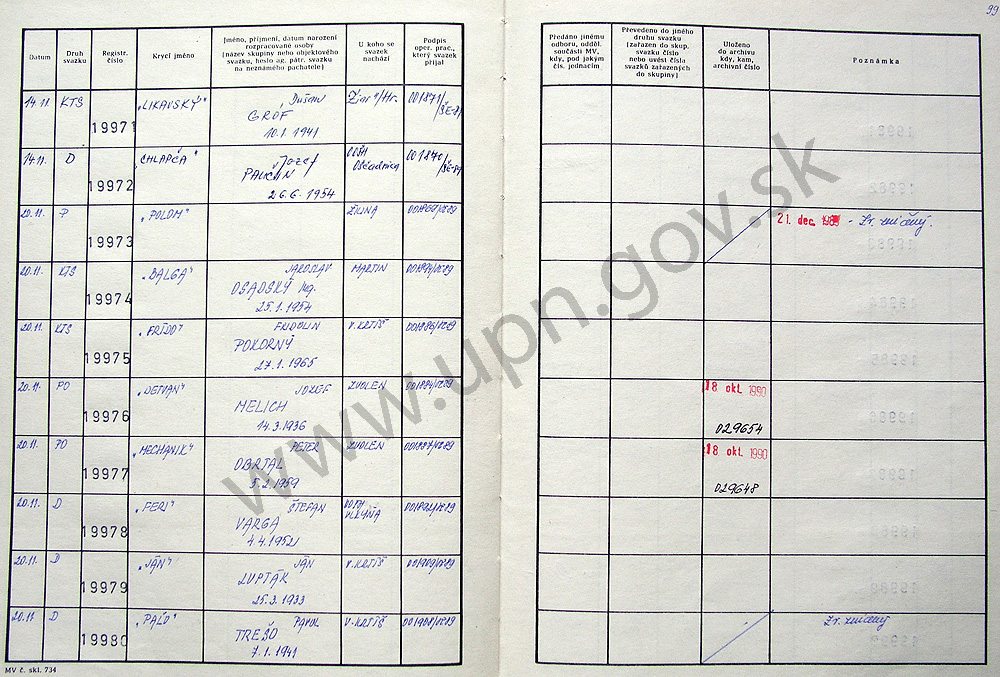 99
Datum
Druh svazku
Registr. číslo
Krycí jméno
Jméno, příjmení, datum narození
rozpracované osoby
(název skupiny nebo objektového
svazku, heslo ag. pátr. svazku
na neznámého pachatele)
U koho se
svazek
nachází
Podpis
oper. prac.,
který svazek
přijal
Předáno jinému
odboru, odděl.
součásti MV,
kdy, pod jakým
čís. jednacím
Převedeno do jiného
druhu svazku
(zařazen do skup.
svazku číslo
nebo uvést čísla
svazků zařazených
do skupiny)
Uloženo
do archivu
kdy, kam,
archivní číslo
Poznámka
14.11. KTS 19971 "LIKAVSKÝ" Dušan
GRÓF
10.1. 1941
14.11. D 19972 "CHLAPČA" Jozef
26.6. 1954
20.11. P 19973 "POLOM" ŽILINA
21. dec. - Zr. zničený.
20.11. KTS 19974 "BALGA" JAROSLAV MARTIN
OSADSKÝ Ing.
25.1. 1954
20.11. KTS 19975 "FRIDO" FRIDOLIN V. KRTÍŠ
POKORNÝ
27.1. 1965
20.11. PO 19976 "DETVAN" JOZEF ZVOLEN
MELICH
14.3. 1936
18 okt. 1990
029654
20.11. PO 19977 "MECHANIK" PETER ZVOLEN
OBRTAL
5.2. 1959
18 okt. 1990
029648
20.11. D 19978 "FERI" ŠTEFAN
VARGA
4.4. 1952
20.11. D 19979 "JÁN" JÁN V. KRTÍŠ
LUPTÁK
25.3. 1933
20.11. D 19980 "PAĽO" PAVOL V. KRTÍŠ
TREŠO
7.1. 1941
Zr. zničený
MV č. skl. 734
www.upn.gov.sk